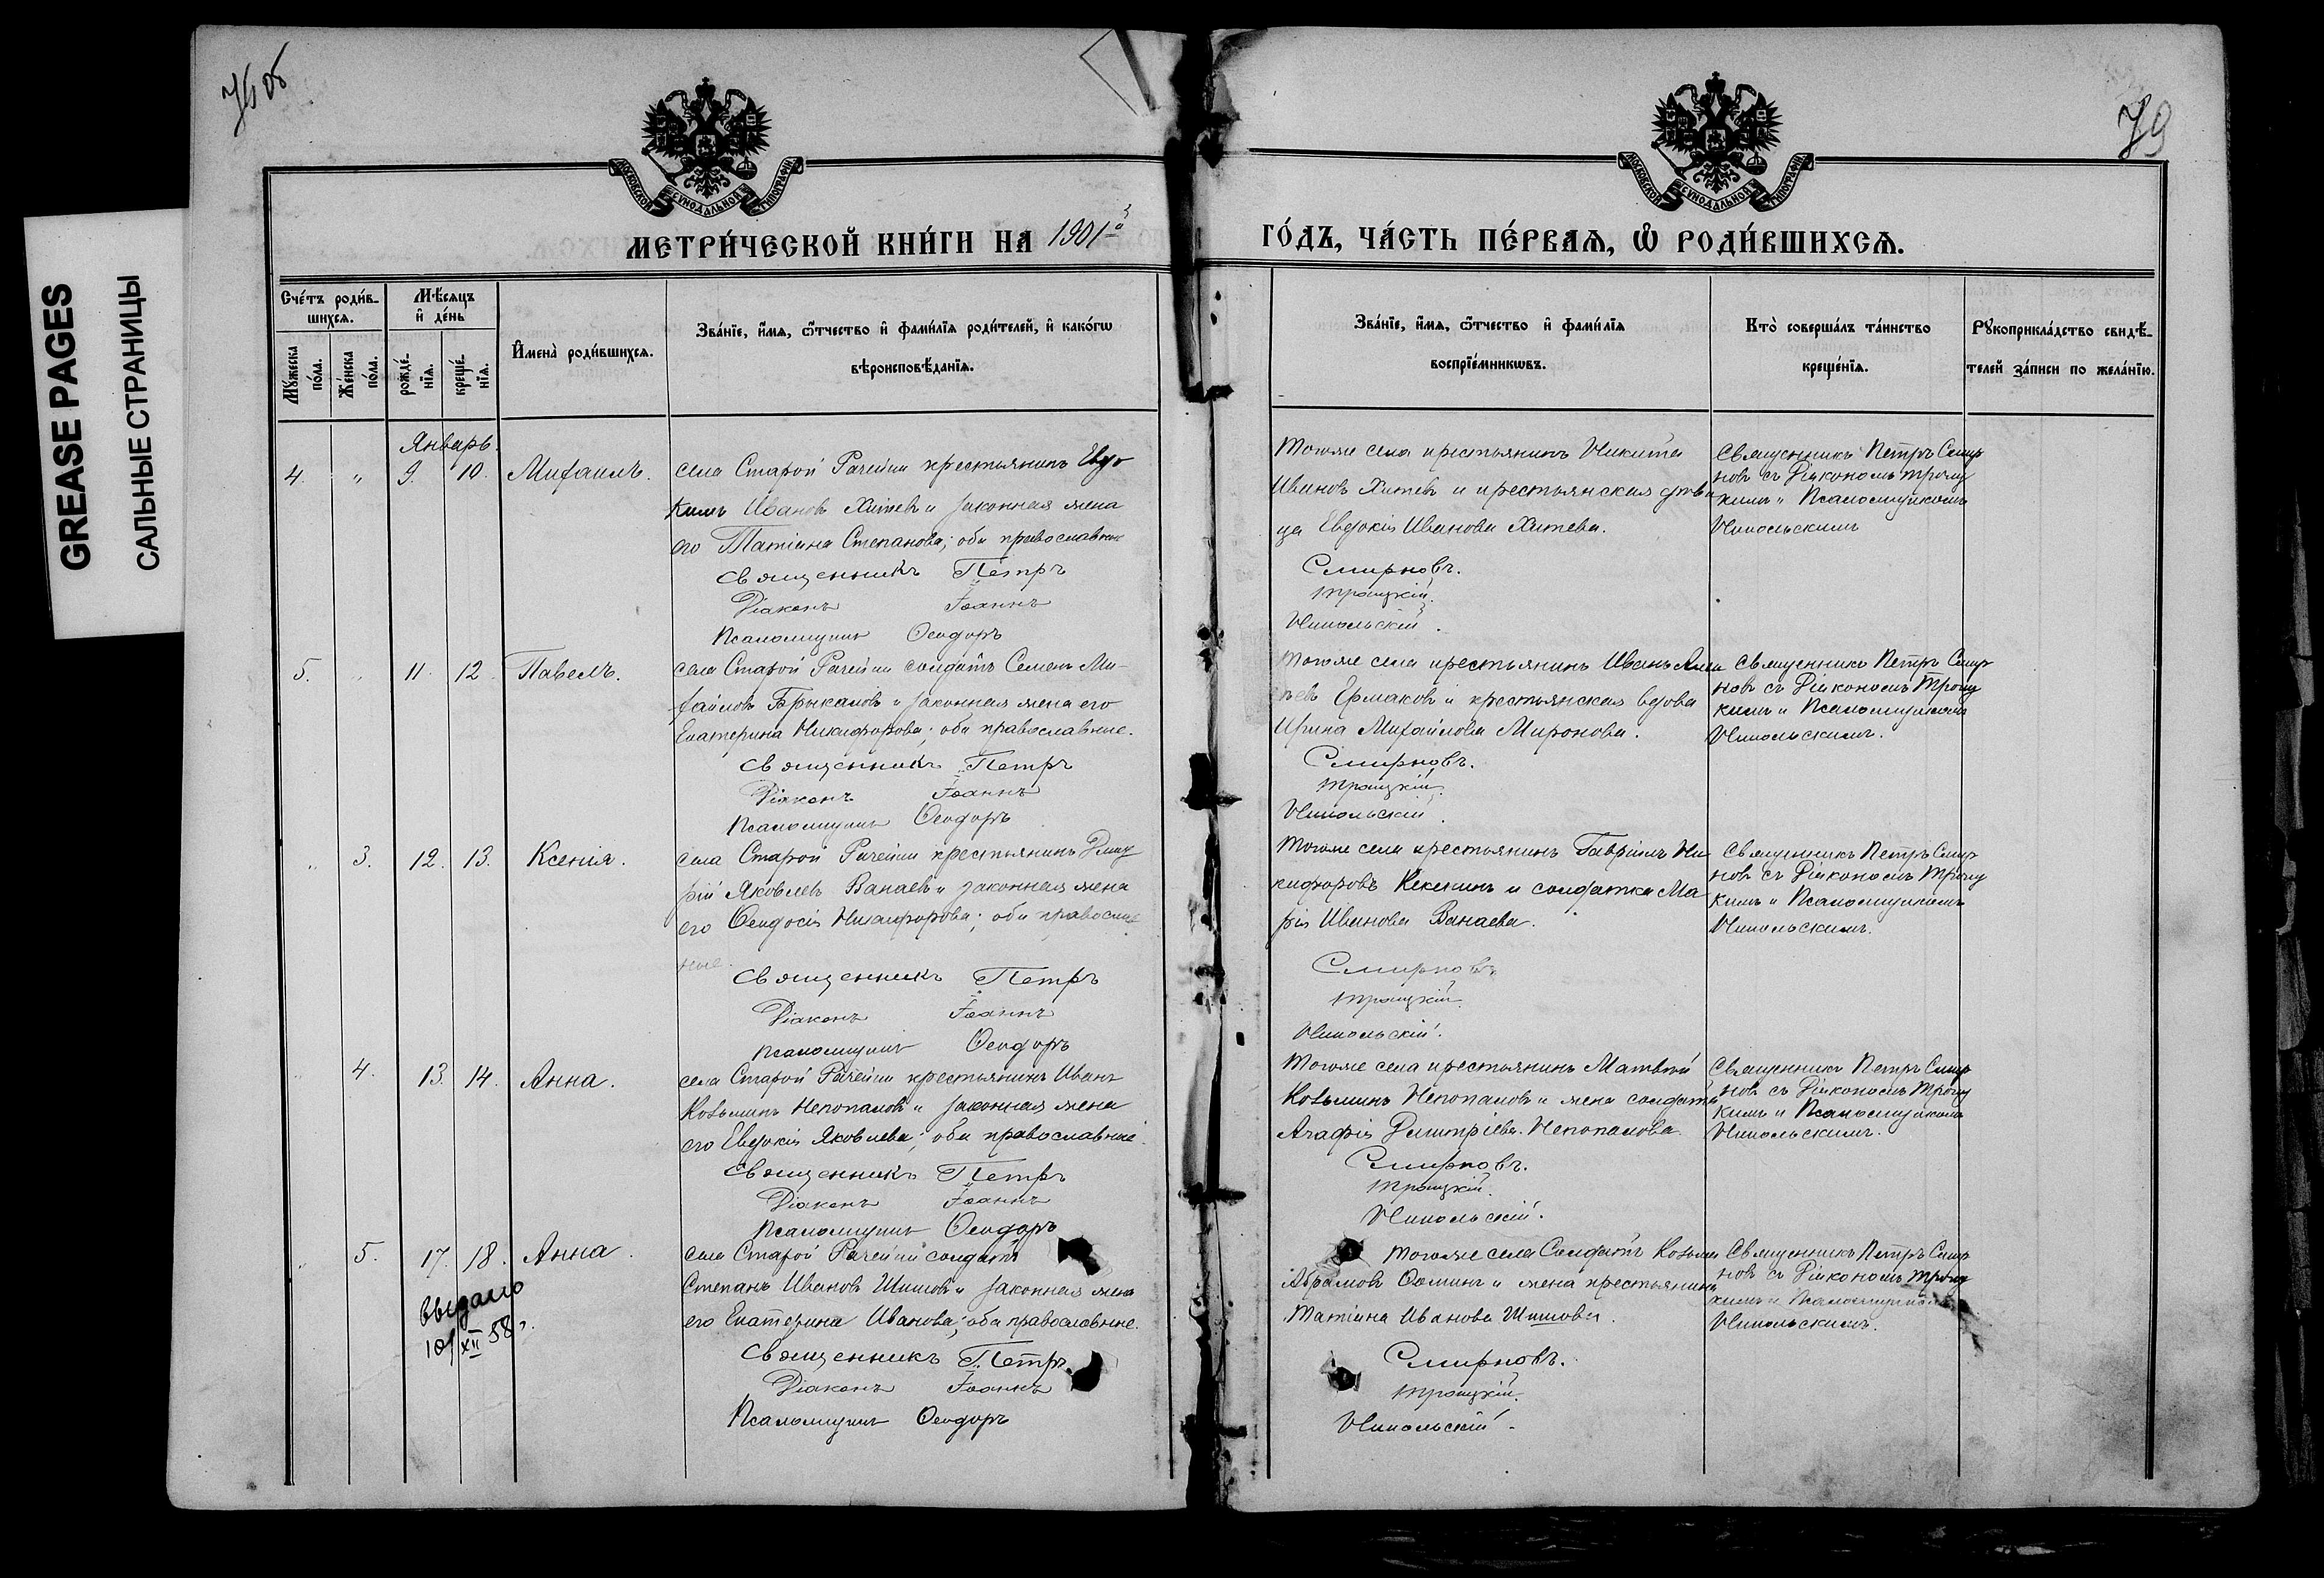 GREASE PAGES
САЛЬНЫЕ СТРАНИЦЫ
79
МОСКОВСКОЙ СѴНОДАЛЬНОЙ ТИПОГРАФІИ
МОСКОВСКОЙ СѴНОДАЛЬНОЙ ТИПОГРАФІИ
МЕТРИ́ЧЕСКОЙ КНИ́ГИ НА 1901й
ГО́ДЪ, ЧА́СТЬ ПЕ́РВАѦ, Ѽ РОДИ́ВШИХСѦ.
Сче́тъ роди́в-
шихсѧ.
Мꙋ́жеска по́ла.
Же́нска по́ла.
Мѣ́сѧцъ
и҆ де́нь
рожде́-
нїѧ.
креще́-
нїѧ.
И҆мена̀ роди́вшихсѧ.
Зва́нїе, и҆́мѧ, ѻ҆́тчество и҆ фами́лїѧ роди́телей, и҆ како́гѡ
вѣроисповѣ́данїѧ.
Зва́нїе, и҆́мѧ, ѻ҆́тчество и҆ фами́лїѧ
воспрїе́мникѡвъ.
Кто̀ соверша́лъ та́инство
креще́нїѧ.
Рꙋкоприкла́дство свидѣ́-
телей за́писи по жела́нїю.
Январь.
4. " 9. 10. Михаилъ.
села Старой Рачейки крестьянинъ Евдо
кимъ Ивановъ Хитевъ и законная жена
его Татіана Степанова; оба православные
Священникъ Петръ
Діаконъ Іоаннъ
Псаломщикъ Ѳеодоръ
Тогоже села крестьянинъ Никита
Ивановъ Хитевъ и крестьянская дѣви
ца Евдокія Иванова Хитева.
Смирновъ.
Троицкій.
Никольскій.
Священникъ Петръ Смир
новъ съ Діакономъ Троиц
кимъ и Псаломщикомъ
Никольскимъ
5. " 11. 12. Павелъ.
села Старой Рачейки солдатъ Семенъ Ми-
хайловъ Брыкаловъ и законная жена его
Екатерина Никифорова; оба православные.
Священникъ Петръ
Діаконъ Іоаннъ
Псаломщикъ Ѳеодоръ
Тогоже села крестьянинъ Иванъ
Ермаковъ и крестьянская вдова
Ирина Михайлова Миронова.
Смирновъ.
Троицкій.
Никольскій.
Священникъ Петръ Смир
новъ съ Діакономъ Троиц
кимъ и Псаломщикомъ
Никольскимъ.
" 3. 12. 13. Ксенія.
села Старой Рачейки крестьянинъ Дмит
рій Яковлевъ Ванаевъ и законная жена
его Ѳеодосія Никифорова; оба православ
ные.
Священникъ Петръ
Діаконъ Іоаннъ
Псаломщикъ Ѳеодоръ
Тогоже села крестьянинъ Гавріилъ Ни
кифоровъ Кекинъ и солдатка Ма
рія Иванова Ванаева.
Смирновъ.
Троицкій.
Никольскій.
Священникъ Петръ Смир
новъ съ Діакономъ Троиц
кимъ и Псаломщикомъ
Никольскимъ.
" 4. 13. 14. Анна.
села Старой Рачейки крестьянинъ Иванъ
Козьминъ Непопаловъ и законная жена
его Евдокія Яковлева; оба православные.
Священникъ Петръ
Діаконъ Іоаннъ
Псаломщикъ Ѳеодоръ
Тогоже села крестьянинъ Матвѣй
Козьминъ Непопаловъ и жена солдата
Агафія Димитріева Непопалова.
Смирновъ.
Троицкій.
Никольскій.
Священникъ Петръ Смир
новъ съ Діакономъ Троиц
кимъ и Псаломщикомъ
Никольскимъ.
" 5. 17. 18. Анна.
выдано
10/XII 58г.
села Старой Рачейки солдатъ
Степанъ Ивановъ Шишовъ и законная жена
его Екатерина Иванова; оба православные.
Священникъ Петръ
Діаконъ Іоаннъ
Псаломщикъ Ѳеодоръ
Тогоже села Солдатъ Козьма
Абрамовъ Ѳоминъ и жена крестьянина
Татіана Иванова Шишова.
Смирновъ.
Троицкій.
Никольскій.
Священникъ Петръ Смир
новъ съ Діакономъ Троиц
кимъ и Псаломщикомъ
Никольскимъ.